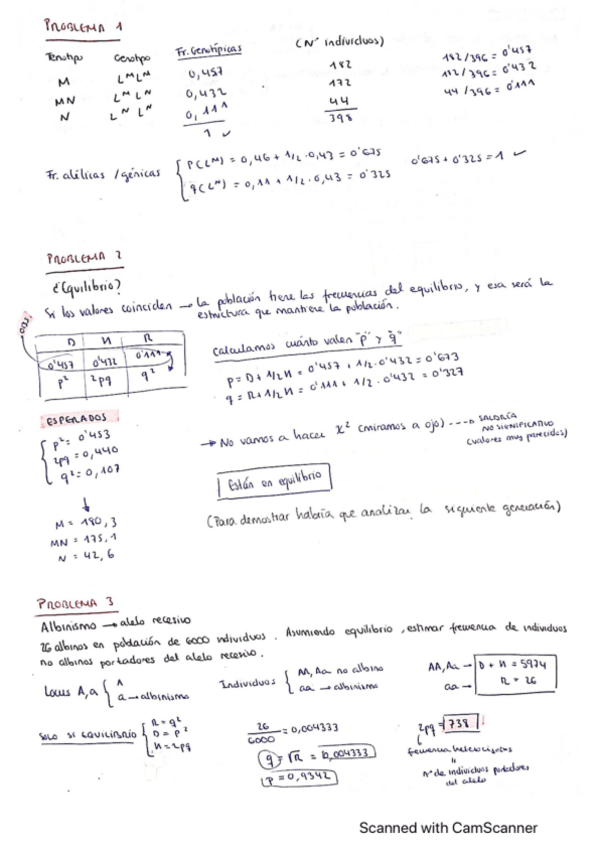 PROBLEMA 1
Fenotipo Genotipo Fr. Genotípicas (Nº individuos)
M L^M L^M 0,457 182 182/396 = 0'457
MN L^M L^N 0,432 172 172/396 = 0'432
N L^N L^N 0,111 44 44/396 = 0'111
1 ✓ 398
Fr. alélicas / génicas { P(L^M) = 0,46 + 1/2 · 0,43 = 0'675 0'675 + 0'325 = 1 ✓
q(L^N) = 0,11 + 1/2 · 0,43 = 0'325
PROBLEMA 2
¿Equilibrio?
Si los valores coinciden → la población tiene las frecuencias del equilibrio, y esa será la
estructura que mantiene la población.
OBS.
D H R
0'457 0'432 0'111
p² 2pq q²
Calculamos cuánto valen "p" y "q"
p = D + 1/2 H = 0'457 + 1/2 · 0'432 = 0'673
q = R + 1/2 H = 0'111 + 1/2 · 0'432 = 0'327
ESPERADOS
p² = 0'453
2pq = 0,440
q² = 0,107
→ No vamos a hacer χ² (miramos a ojo) ----→ SALDRÍA
NO SIGNIFICATIVO
(valores muy parecidos)
Están en equilibrio
↓
M = 180,3
MN = 175,1
N = 42,6
(Para demostrar habría que analizar la siguiente generación)
PROBLEMA 3
Albinismo → alelo recesivo
26 albinos en población de 6000 individuos. Asumiendo equilibrio, estimar frecuencia de individuos
no albinos portadores del alelo recesivo.
Locus A,a { A
a → albinismo
Individuos { AA, Aa no albino
aa → albinismo
AA, Aa → D + H = 5974
aa → R = 26
SOLO SI EQUILIBRIO { R = q²
D = p²
H = 2pq
26/6000 = 0,004333
q = √R = √0,004333
P = 0,9342
2pq = 738
frecuencia heterocigotos
Nº de individuos portadores
del alelo
Scanned with CamScanner